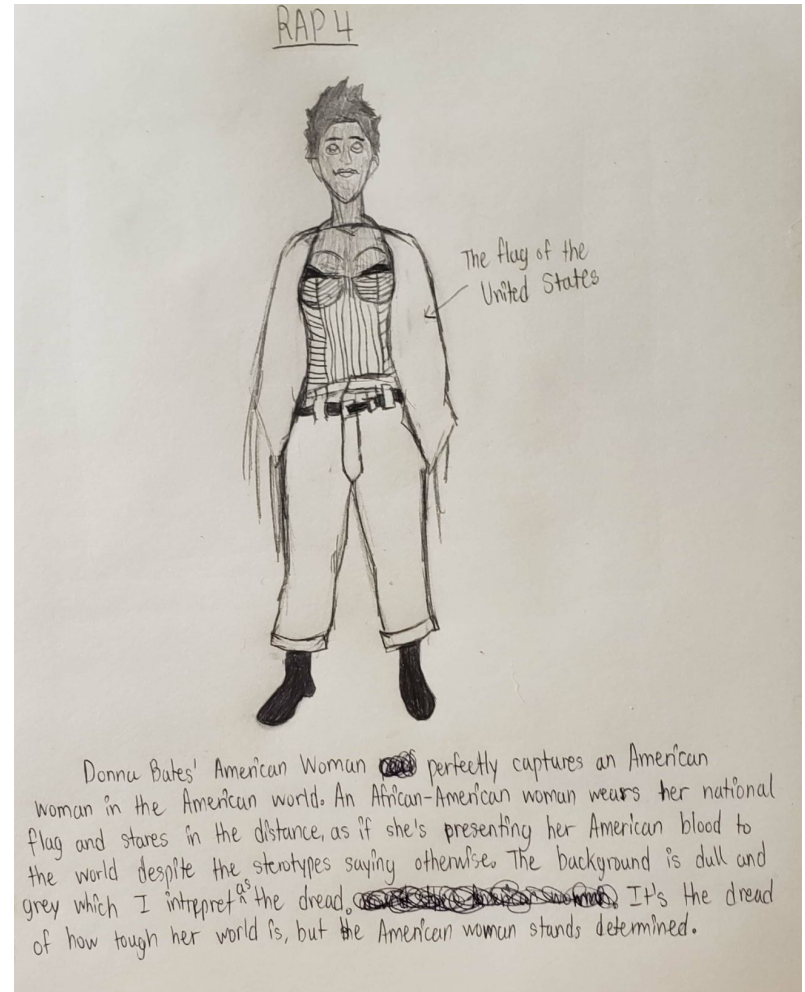 RAP 4
The flag of the
United States
Donna Bates' American Woman perfectly captures an American
woman in the American world. An African-American woman wears her national
flag and stares in the distance, as if she's presenting her American blood to
the world despite the sterotypes saying otherwise. The background is dull and
grey which I intrepret as the dread. It's the dread
of how tough her world is, but the American woman stands determined.